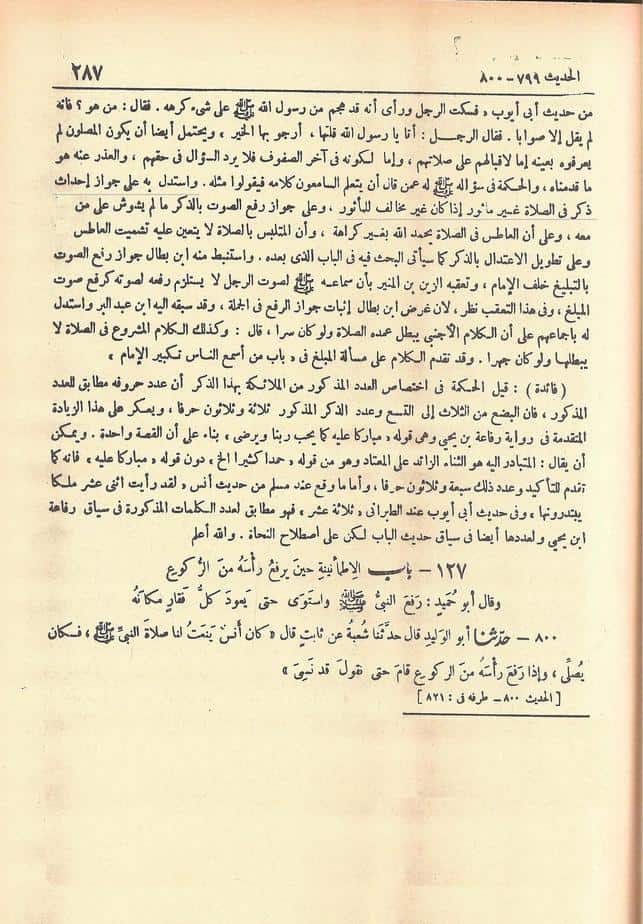 الحديث ٧٩٩ - ٨٠٠
٢٨٧
من حديث أبى أيوب « فسكت الرجل ورأى أنه قد هجم من رسول الله ﷺ على شىء كرهه . فقال : من هو ؟ فانه
لم يقل إلا صوابا . فقال الرجـل : أنا يا رسول الله قلتها ، أرجو بها الخير » ويحتمل أيضا أن يكون المصلون لم
يعرفوه بعينه إما لاقبالهم على صلاتهم ، وإما لـكونه فى آخر الصفوف فلا يرد السؤال فى حقهم ، والعذر عنه هو
ما قدمناه ، والحكمة فى سؤاله ﷺ له عمن قال أن يتعلم السامعون كلامه فيقولوا مثله . واستدل به على جواز إحداث
ذكر فى الصلاة غـير مأثور إذا كان غير مخالف للمأثور ، وعلى جواز رفع الصوت بالذكر ما لم يشوش على من
معه ، وعلى أن العاطس فى الصلاة يحمد الله بغـير كراهة ، وأن المتلبس بالصلاة لا يتعين عليه تشميت العاطس
وعلى تطويل الاعتدال بالذكر كما سيأتى البحث فيه فى الباب الذى بعده . واستنبط منه ابن بطال جواز رفع الصوت
بالتبليغ خلف الإمام ، وتعقبه الزين بن المنير بأن سماعـه ﷺ لصوت الرجل لا يستلزم رفعه لصوته كرفع صوت
المبلغ ، وفى هذا التعقب نظر ، لان غرض ابن بطال إثبات جواز الرفع فى الجملة ، وقد سبقه اليه ابن عبد البر واستدل
له باجماعهم على أن الكلام الأجنبي يبطل عمده الصلاة ولو كان سرا ، قال : وكذلك الكلام المشروع فى الصلاة لا
يبطلها ولو كان جهرا . وقد تقدم الكلام على مسألة المبلغ فى « باب من أسمع الناس تـكبير الإمام »
( فائدة ) : قيل الحكمة فى اختصاص العدد المذكور من الملائـكة بهذا الذكر أن عدد حروفه مطابق للعدد
المذكور ، فان البضع من الثلاث إلى التسع وعدد الذكر المذكور ثلاثة وثلاثون حرفا ، ويعكر على هذا الزيادة
المتقدمة فى رواية رفاعة بن يحيى وهى قوله « مباركا عليه كما يحب ربنا ويرضى ، بناء على أن القصة واحدة . ويمكن
أن يقال : المتبادر اليه هو الثناء الزائد على المعتاد وهو من قوله « حمدا كثيرا الخ ، دون قوله « مباركا عليه » فانه كما
تقدم للتأكيد وعدد ذلك سبعة وثلاثون حرفا ، وأما ما وقع عند مسلم من حديث أنس « لقد رأيت اثنى عشر ملـكا
يبتدرونها » وفى حديث أبى أيوب عند الطبرانى « ثلاثة عشر » فهو مطابق لعدد الكلمات المذكورة فى سياق رفاعة
ابن يحيى ولعددها أيضا فى سياق حديث الباب لكن على اصطلاح النحاة . والله أعلم
١٢٧ – باب الإطمأنينةِ حينَ يرفعُ رأسَهُ منَ الرُّكوعِ
وقال أبو حُمَيد : رَفَعَ النبىُّ ﷺ واستَوَى حتى يَعودَ كلُّ فقارٍ مكانَهُ
٨٠٠ – حدّثنا أبو الوليدِ قال حدَّثَنا شُعبةُ عن ثابتٍ قال « كان أنسٌ يَنعَتُ لنا صلاةَ النبيِّ ﷺ ، فـكان
يُصلِّى ، وإذا رَفَعَ رأسَهُ منَ الركوعِ قامَ حتى نقولَ قد نَسِىَ »
[ الحديث ٨٠٠ - طرفه فى : ٨٢١ ]